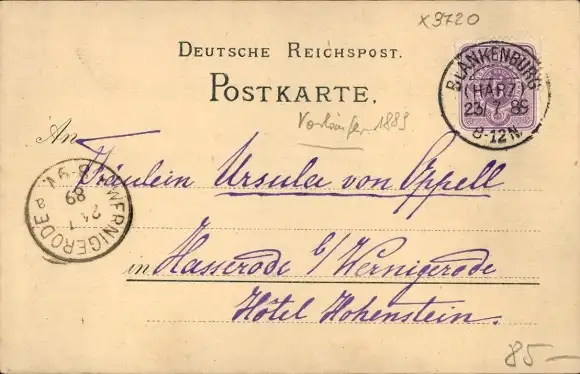 x3720
DEUTSCHE REICHSPOST.
POSTKARTE.
BLANKENBURG
(HARZ)
23/7.89
8-12N.
Vorläufer 1889
An
Fräulein Ursula von Eppell
WERNIGERODE
24 7
89
8-9V
a
in Hasserode b/Wernigerode
Hôtel Hohenstein.
85-